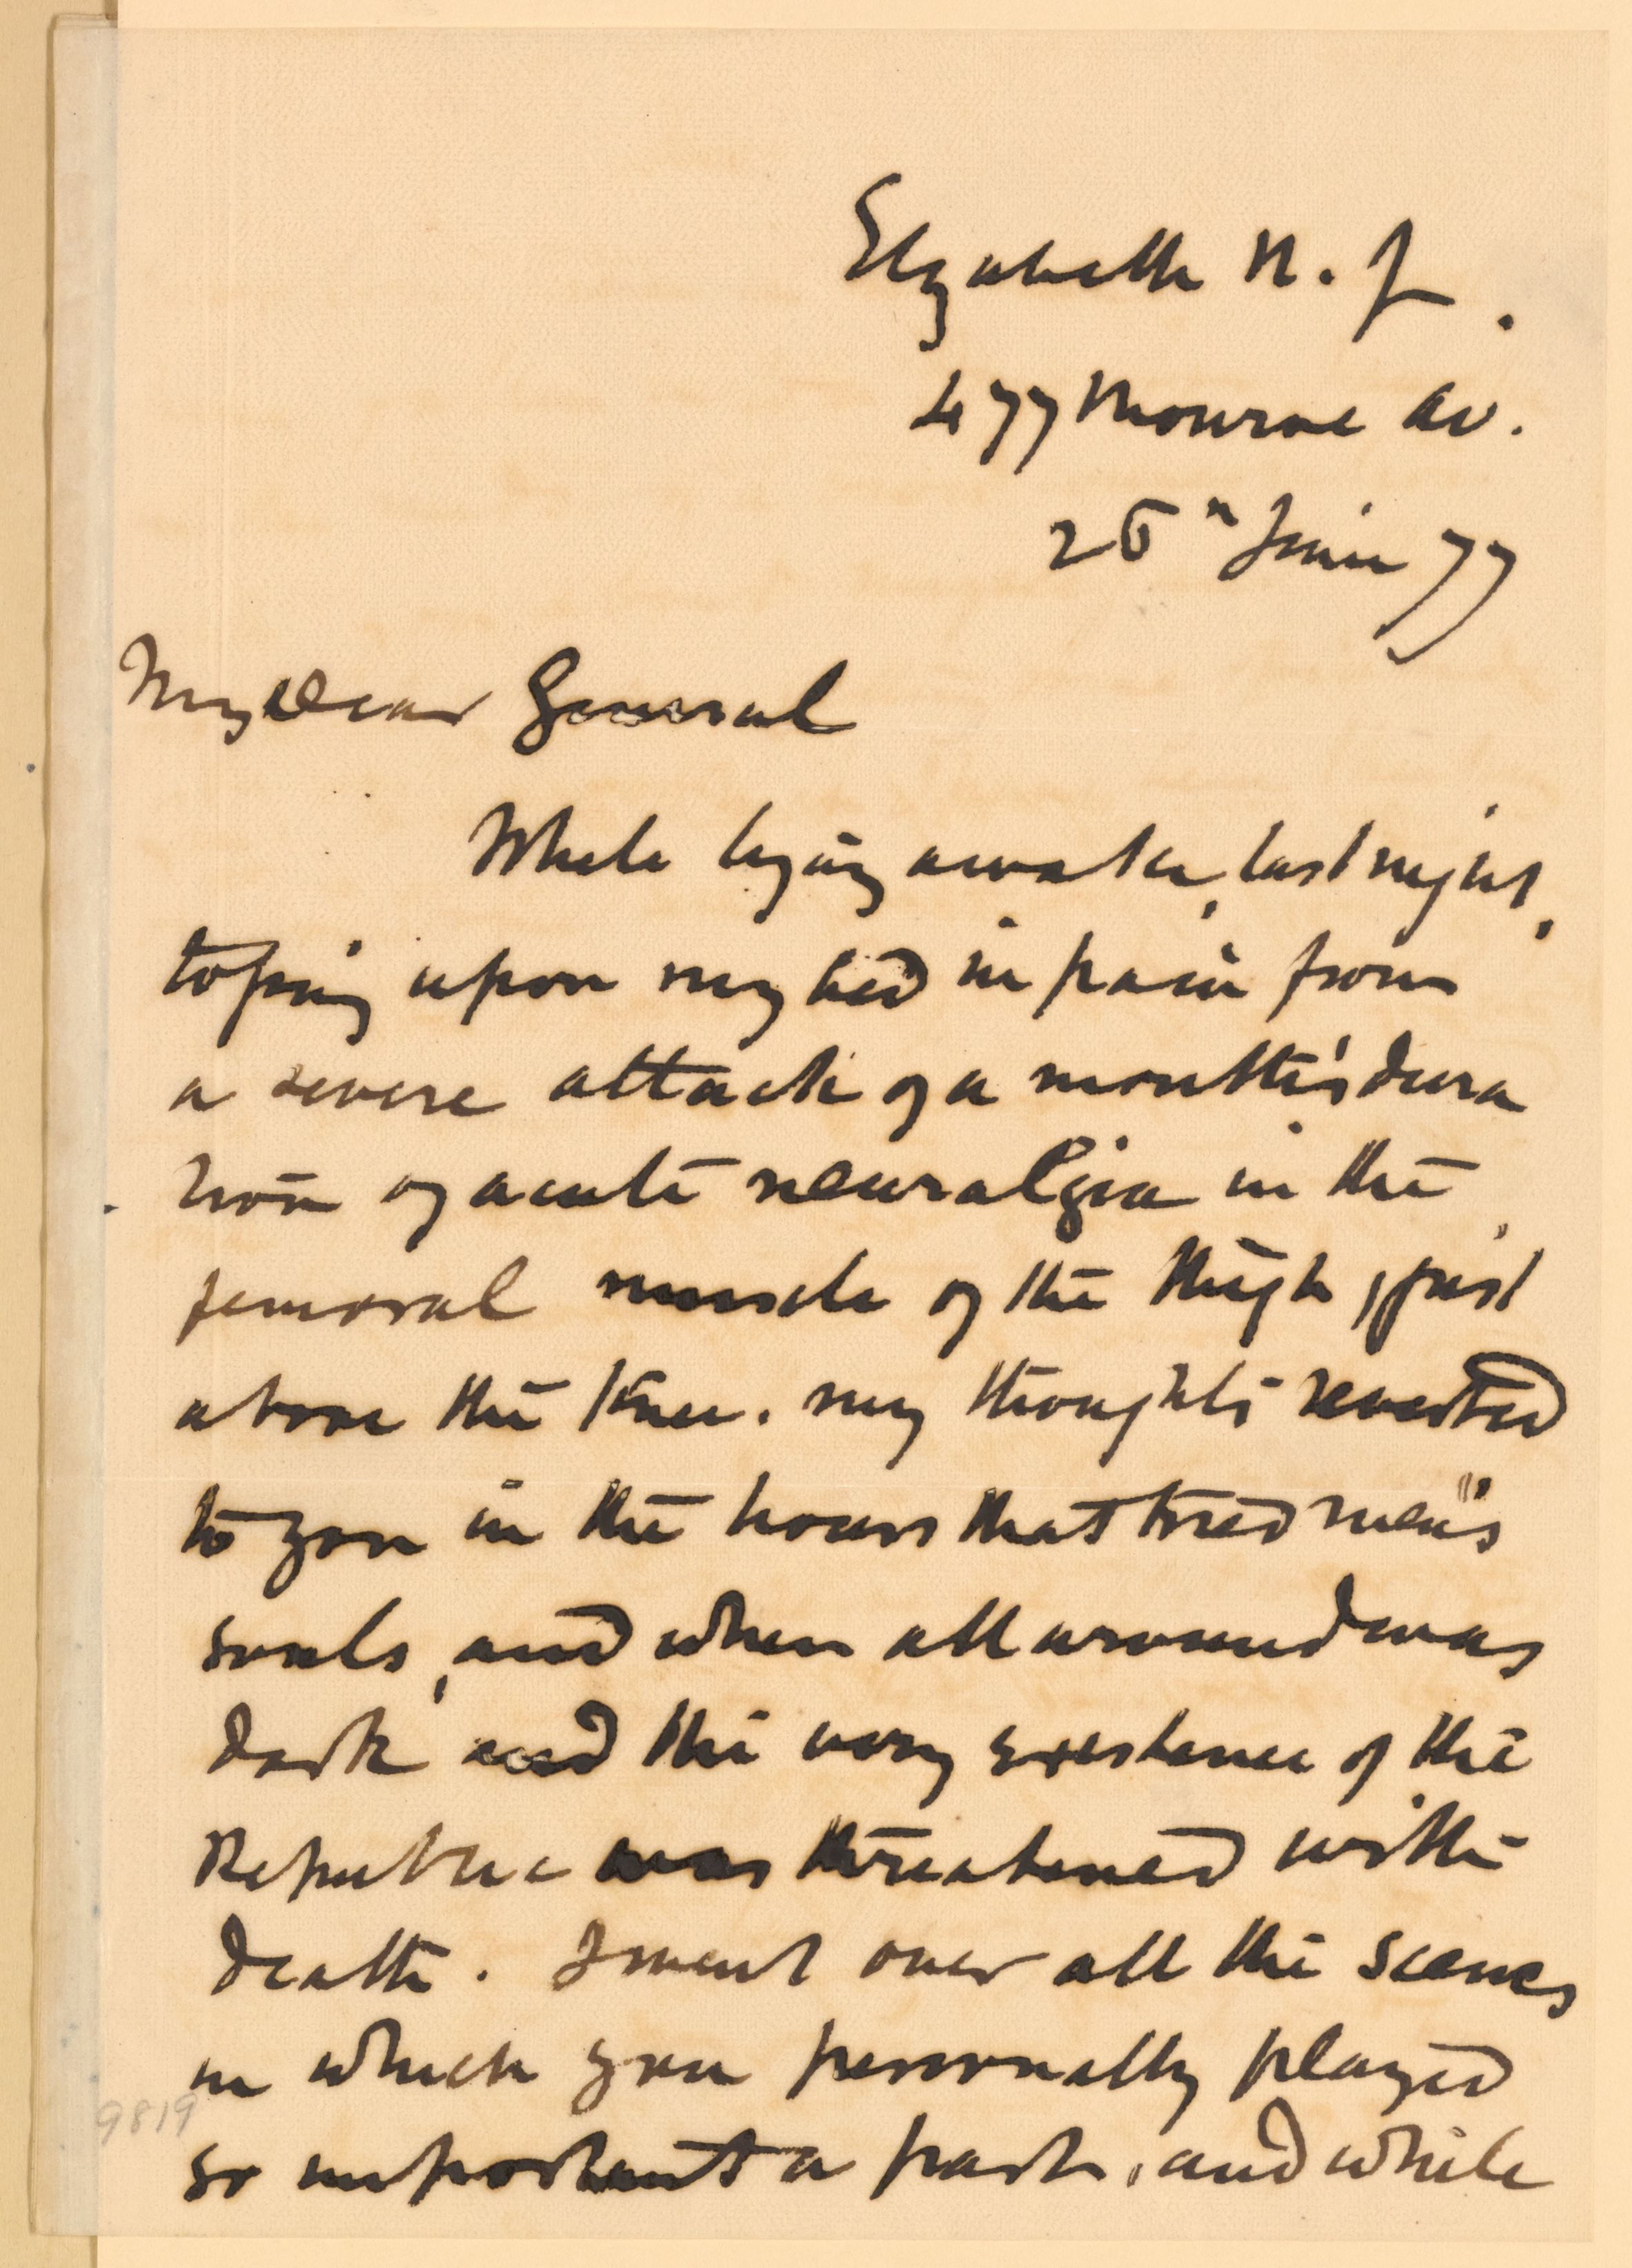 Elizabeth N. J.
477 Monroe Av.
26th June 77
My Dear General
While lying awake, last night,
tossing upon my bed in pain from
a severe attack of a month's dura
tion of acute neuralgia in the
femoral muscle of the thigh, just
above the knee. my thoughts reverted
to you in the hours that tried men's
souls, and when all around was
dark and the very existence of the
Republic was threatened with
death. I went over all the scenes
in which you personally played
so important a part, and while
9819